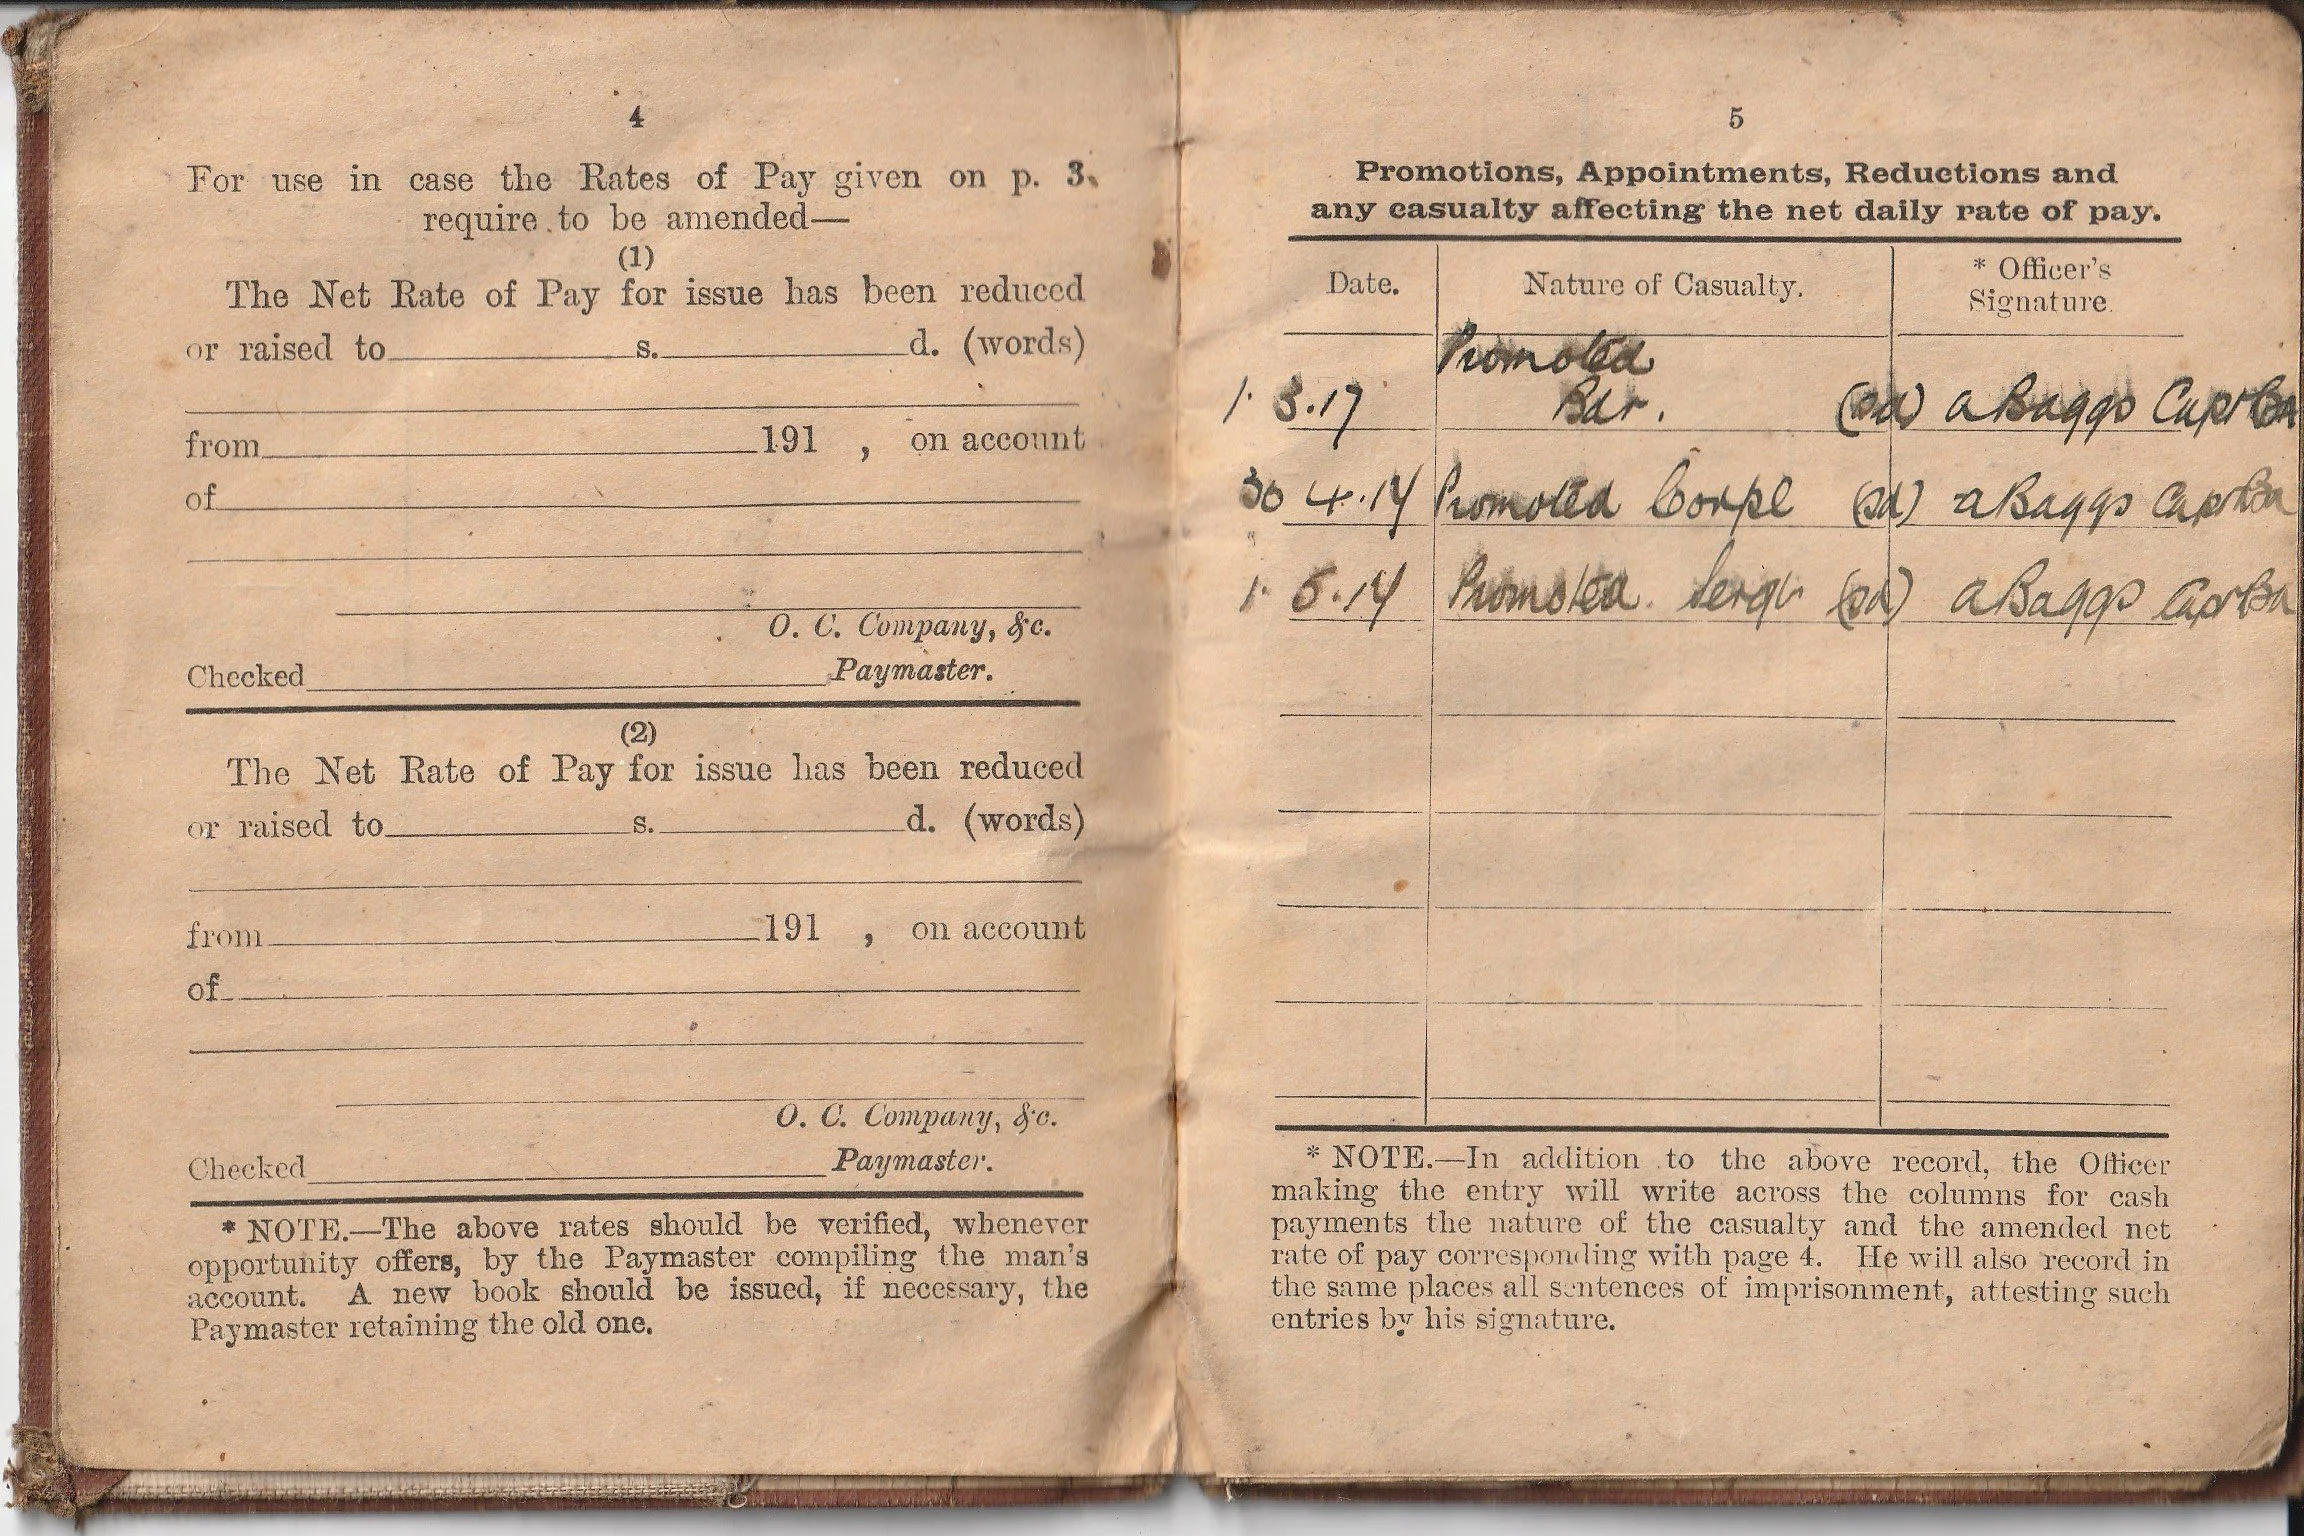 4
For use in case the Rates of Pay given on p. 3.
require to be amended—
(1)
The Net Rate of Pay for issue has been reduced
or raised to s. d. (words)
from 191 , on account
of
O. C. Company, &c.
Checked Paymaster.
(2)
The Net Rate of Pay for issue has been reduced
or raised to s. d. (words)
from 191 , on account
of
O. C. Company, &c.
Checked Paymaster.
* NOTE.—The above rates should be verified, whenever
opportunity offers, by the Paymaster compiling the man's
account. A new book should be issued, if necessary, the
Paymaster retaining the old one.
5
Promotions, Appointments, Reductions and
any casualty affecting the net daily rate of pay.
Date. Nature of Casualty. * Officer's
Signature.
Promoted
1. 3.17 Bdr. (sd) A Baggs Capt
30 4.17 Promoted Corpl (sd) A Baggs Capt
1. 5.17 Promoted Sergt (sd) A Baggs Capt
* NOTE.—In addition to the above record, the Officer
making the entry will write across the columns for cash
payments the nature of the casualty and the amended net
rate of pay corresponding with page 4. He will also record in
the same places all sentences of imprisonment, attesting such
entries by his signature.